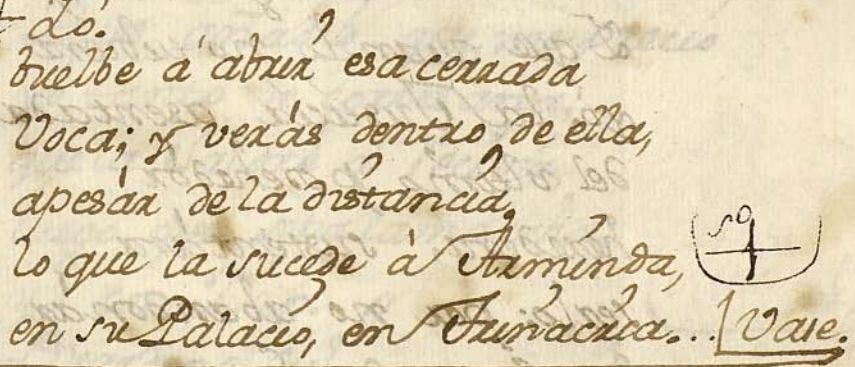 do.
buelbe à abrir esa cerrada
Voca; y verás dentro de ella,
apesár de la distancia,
lo que la sucede à Arminda,
en su Palacio, en Trinacria... Vase.